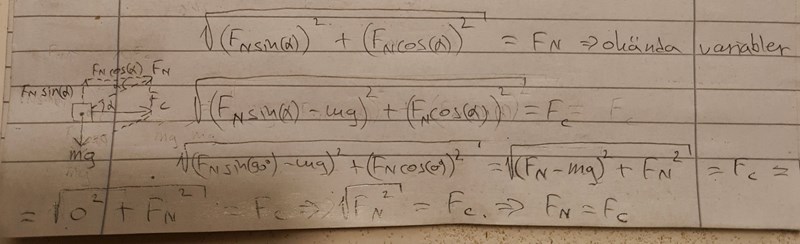 √((F_N sin(α))² + (F_N cos(α))²) = F_N ⇒ okända variabler
F_N cos(α) F_N
F_N sin(α) α F_C
mg
√((F_N sin(α) - mg)² + (F_N cos(α))²) = F_C
√((F_N sin(90°) - mg)² + (F_N cos(0°))²) = √((F_N - mg)² + F_N²) = F_C =
= √(0² + F_N²) = F_C ⇒ √(F_N²) = F_C. ⇒ F_N = F_C